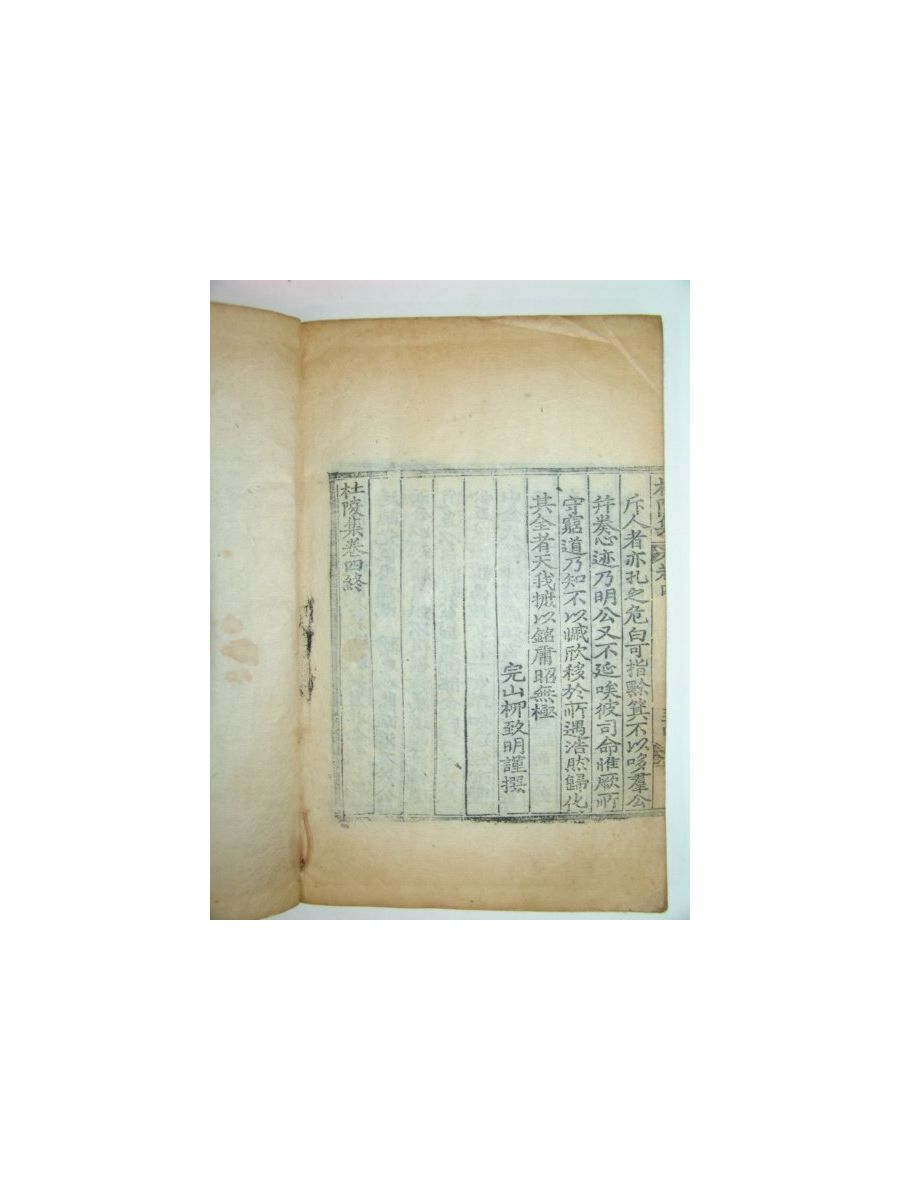 斥人者亦扎之危白可指黟箕不以哆羣公
幷奏心迹乃明公又不延唉彼司命惟厥所
守窮道乃知不以慽欣移於所遇浩然歸化
其全者天我摭以銘庸昭無極
完山柳致明謹撰
杜陵集卷四終